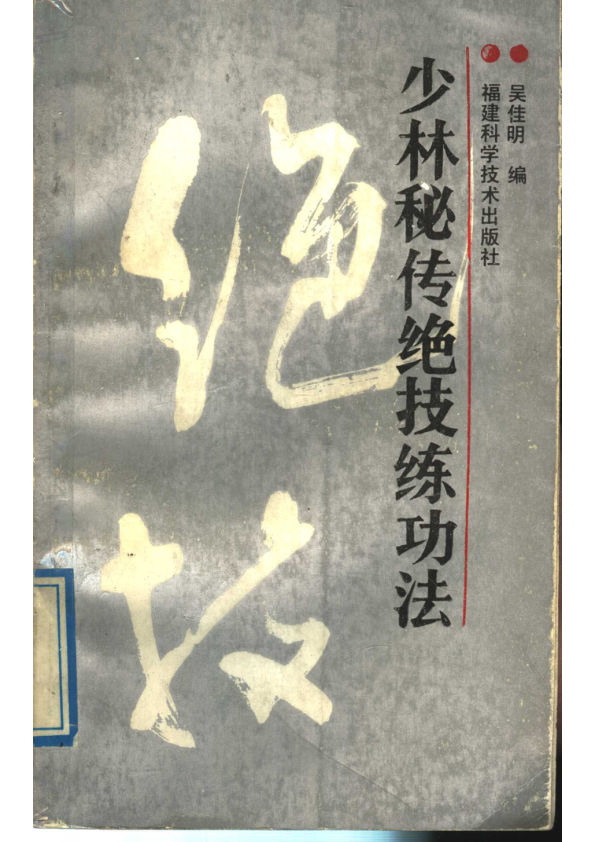 吴佳明 编
福建科学技术出版社
少林秘传绝技练功法
绝技